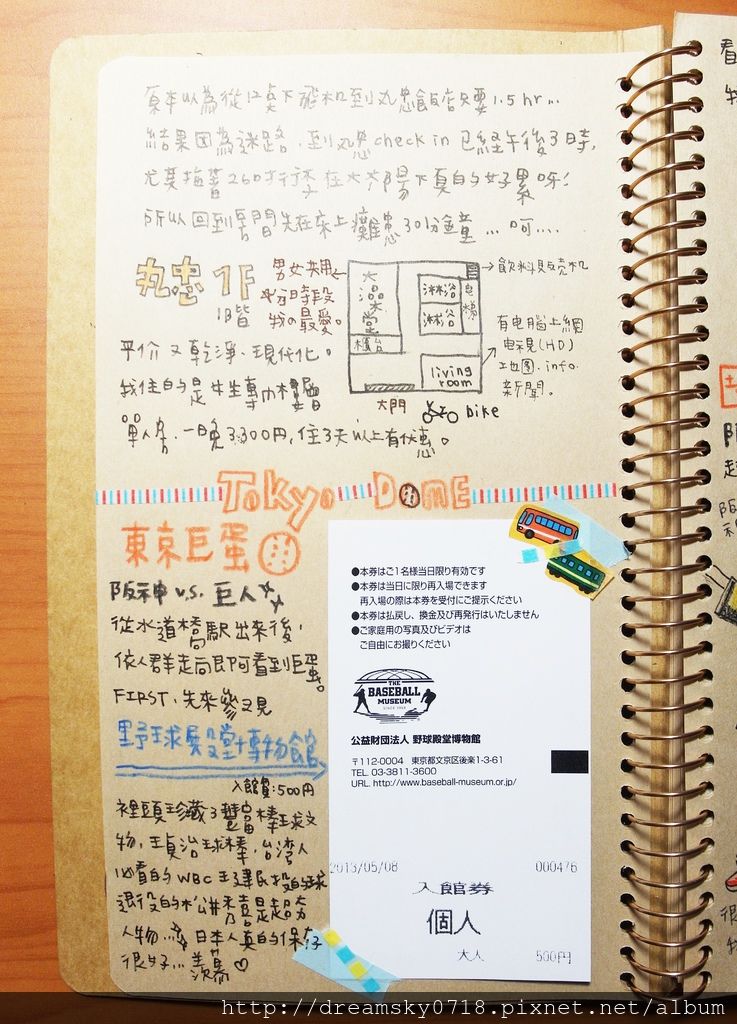 原本以為從12點下飛机到丸忠飯店只要1.5hr...
結果因為迷路,到丸忠check in已経午後3時,
尤其拖著26吋行李在大太陽下真的好累呀!
所以回到房間先在床上癱患30分鐘...呵....
丸忠 1F
1階
男女共用
分時段
我の最愛。
大澡堂
櫃台
淋浴
淋浴
电梯
living room
大門
bike
飲料販売机
有电脳上網
电視(HD)
地図.info.
新聞。
平价又乾淨、現代化。
我住的是女生專用樓層
單人房,一晚3300円,住3天以上有优惠。
Tokyo DOME
東京巨蛋
阪神 v.s. 巨人
從水道橋駅出來後,
依人群走向即可看到巨蛋。
FIRST,先來參見
野球殿堂博物館
入館費:500円
裡頭珍藏了豐富棒球文
物,王貞治球棒,台湾人
必看的WBC王建民投的球
退役的松井秀喜是超夯
人物...日本人真的保存
很好...羨慕♡
●本券はご1名様当日限り有効です
●本券は当日に限り再入場できます
再入場の際は本券を受付にご提示ください
●本券は払戻し、換金及び再発行はいたしません
●ご家庭用の写真及びビデオは
ご自由にお撮りください
THE
BASEBALL
MUSEUM
SINCE 1959
公益財団法人 野球殿堂博物館
〒112-0004 東京都文京区後楽1-3-61
TEL. 03-3811-3600
URL. http://www.baseball-museum.or.jp/
2013/05/08 000476
入館券
個人
大人 500円
http://dreamsky0718.pixnet.net/album